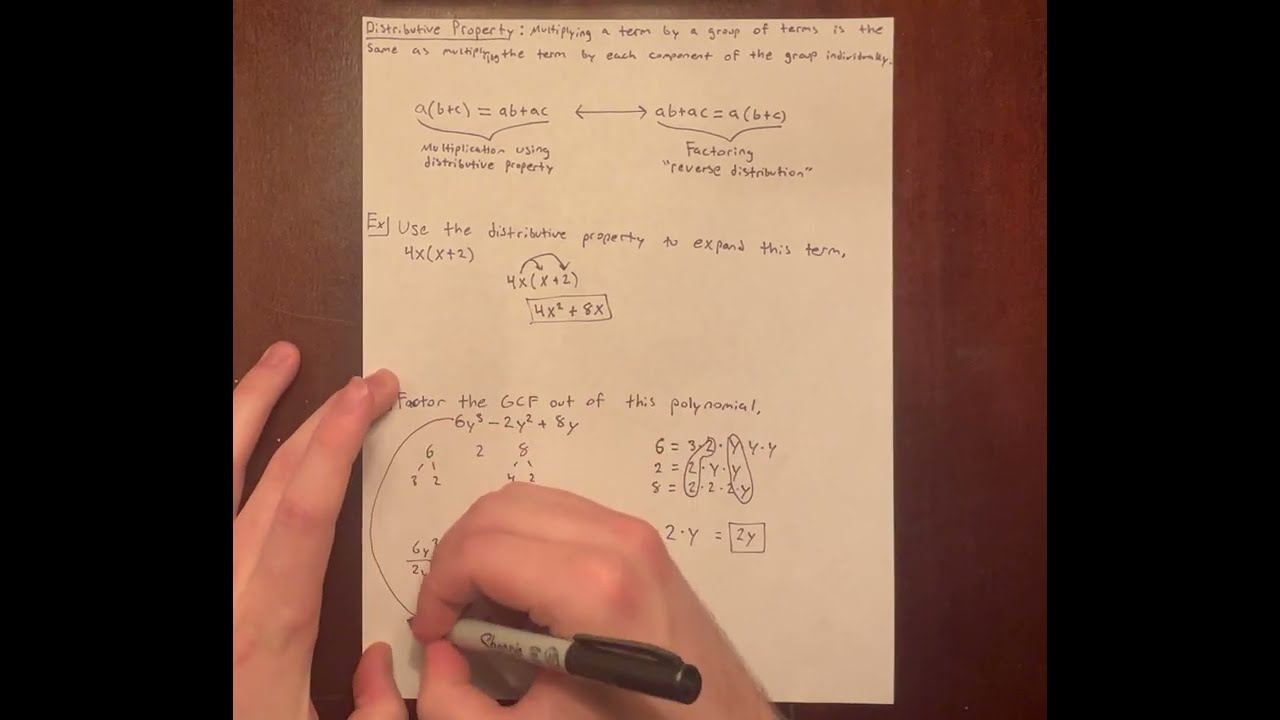 Distributive Property: Multiplying a term by a group of terms is the
same as multiplying the term by each component of the group individually.
a(b+c) = ab+ac ⟷ ab+ac = a(b+c)
Multiplication using
distributive property
Factoring
"reverse distribution"
Ex Use the distributive property to expand this term.
4x(x+2)
4x(x+2)
4x² + 8x
Factor the GCF out of this polynomial.
6y³ − 2y² + 8y
6 2 8
3 2 4 2
6 = 3·2·y y·y
2 = 2·y·y
8 = 2·2·2·y
2·y = 2y
6y³
2y
Sharpie